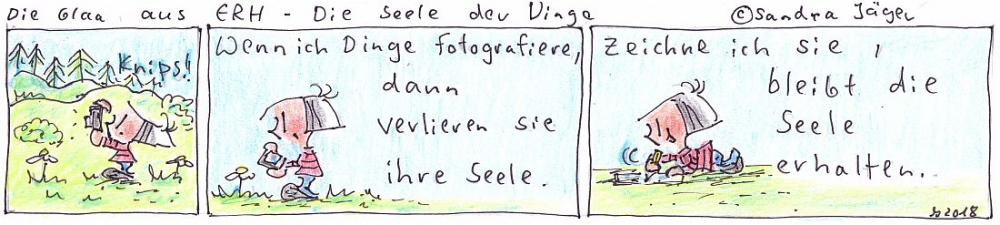 Die Glaa aus ERH - Die Seele der Dinge ©Sandra Jäger
Knips!
Wenn ich Dinge fotografiere,
dann
verlieren sie
ihre Seele.
Zeichne ich sie,
bleibt die
Seele
erhalten.
2018